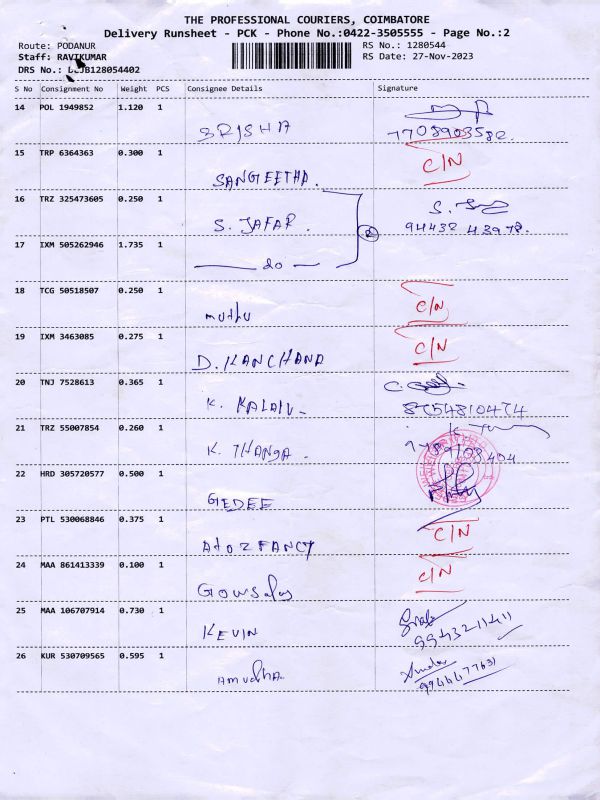 THE PROFESSIONAL COURIERS, COIMBATORE
Delivery Runsheet - PCK - Phone No.:0422-3505555 - Page No.:2
Route: PODANUR RS No.: 1280544
Staff: RAVIKUMAR RS Date: 27-Nov-2023
DRS No.:
S No Consignment No Weight PCS Consignee Details Signature
14 POL 1949852 1.120 1
SRISHA 7708903582.
15 TRP 6364363 0.300 1 C/N
SANGEETHA.
16 TRZ 325473605 0.250 1
S. JAFAR. 94432 43978.
17 IXM 505262946 1.735 1
do
18 TCG 50518507 0.250 1 C/N
muthu
19 IXM 3463085 0.275 1 C/N
D. KANCHANA
20 TNJ 7528613 0.365 1
K. 8754810474
21 TRZ 55007854 0.260 1
K. THANGA.
22 HRD 305720577 0.500 1
GEDEE
23 PTL 530068846 0.375 1 C/N
A to Z FANCY
24 MAA 861413339 0.100 1 C/N
Gowsalya
25 MAA 106707914 0.730 1
KEVIN 99432-11411
26 KUR 530709565 0.595 1
Amudha 9944477631